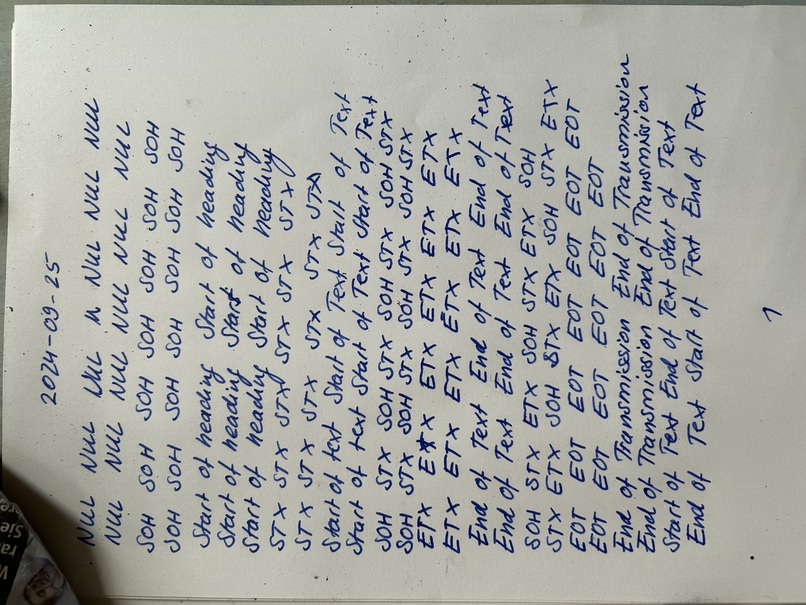 2024-09-25
NUL NUL NUL N NUL NUL NUL
NUL NUL NUL NUL NUL NUL
SOH SOH SOH SOH SOH SOH SOH
SOH SOH SOH SOH SOH SOH
Start of heading Start of heading
Start of heading Start of heading
Start of heading Start of heading
STX STX STX STX STX STX STX
STX STX STX STX STX STX
Start of text Start of Text Start of Text
Start of text Start of Text Start of Text
SOH STX SOH STX SOH STX SOH STX
SOH STX SOH STX SOH STX SOH STX
ETX ETX ETX ETX ETX ETX ETX
ETX ETX ETX ETX ETX ETX ETX
End of Text End of Text End of Text
End of Text End of Text End of Text
SOH STX ETX SOH STX ETX SOH
STX ETX SOH STX ETX SOH STX ETX
EOT EOT EOT EOT EOT EOT EOT
EOT EOT EOT EOT EOT EOT
End of Transmission End of Transmission
End of Transmission End of Transmission
Start of Text End of Text Start of Text
End of Text Start of Text End of Text
1